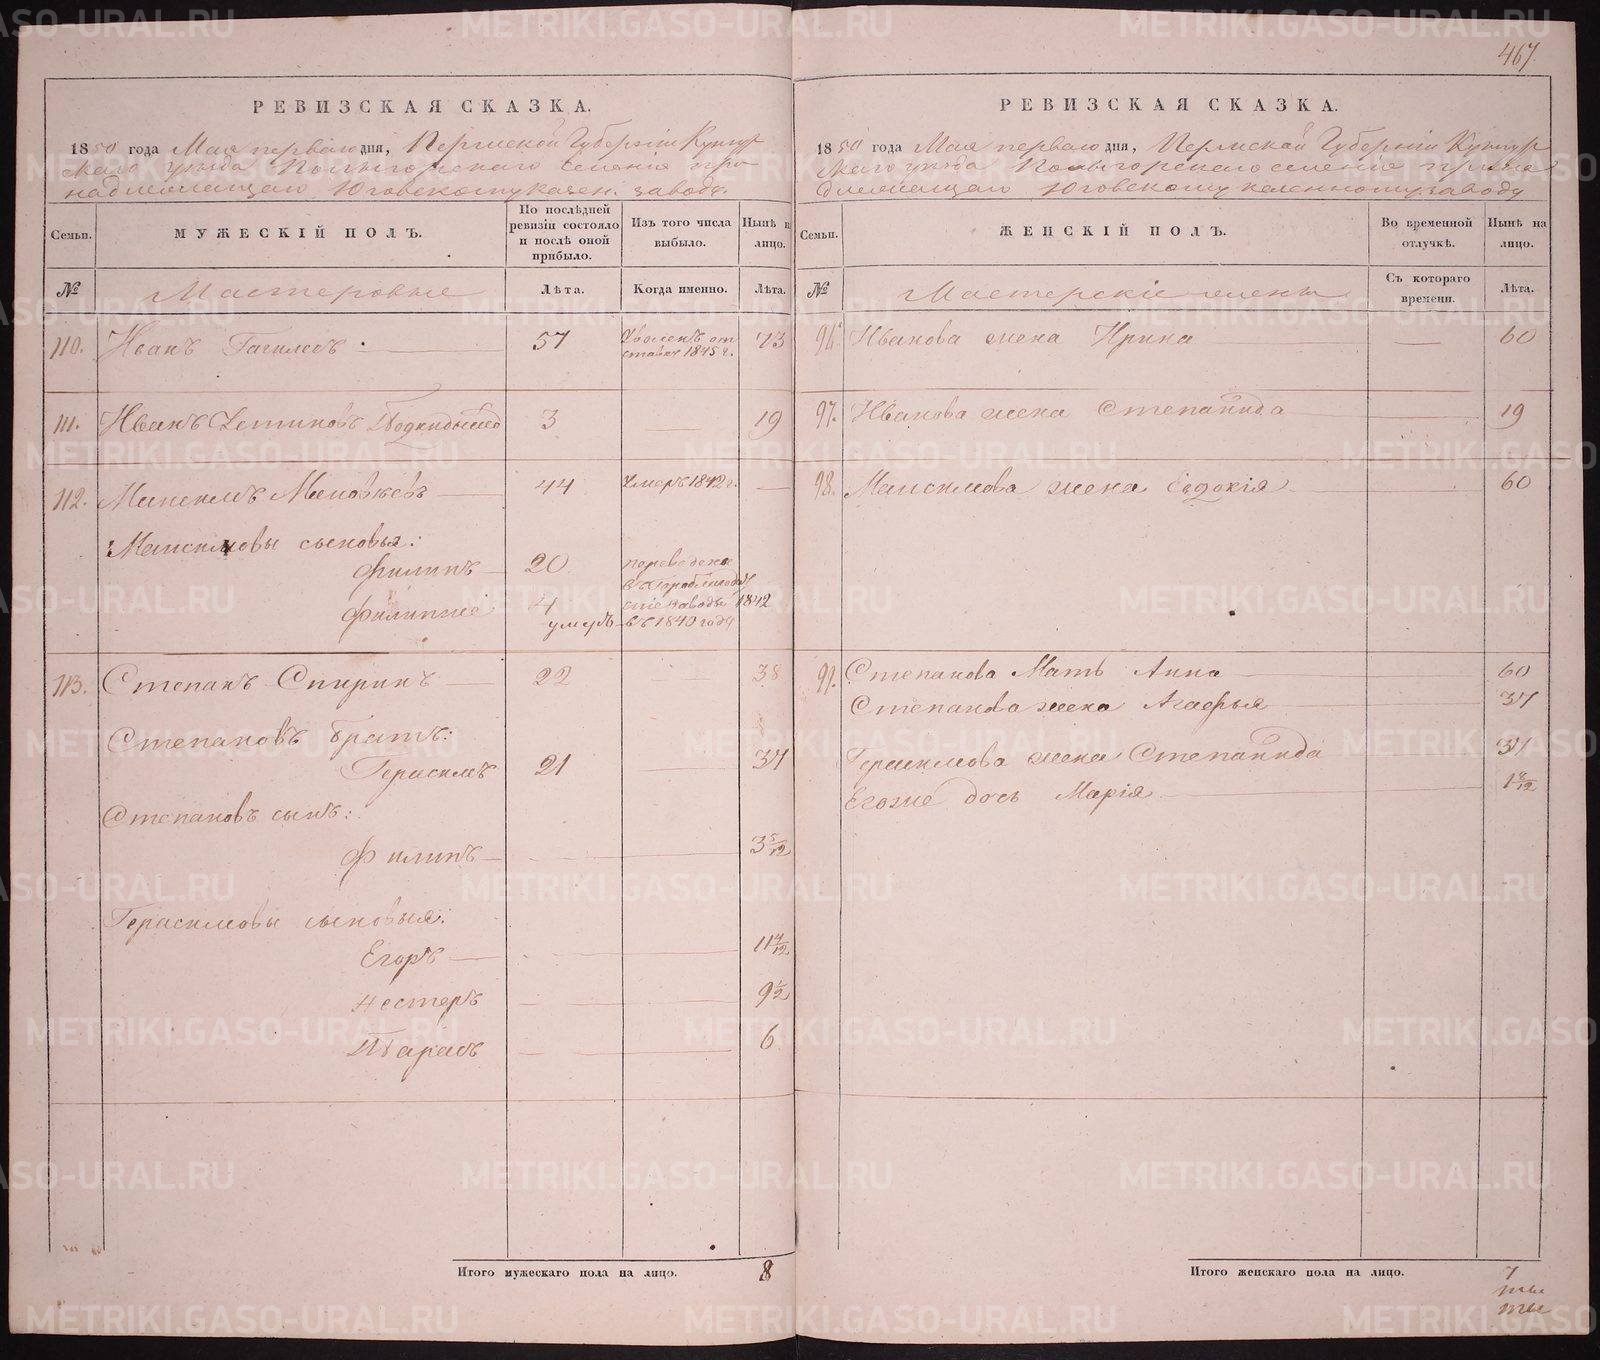 467.
РЕВИЗСКАЯ СКАЗКА.
1850 года Мая перваго дня, Пермской Губерніи Кунгур
скаго уезда селенія при
надлежащаго Юговскому казен. заводу.
Семьи.
МУЖЕСКІЙ ПОЛЪ.
По послѣдней ревизіи состояло и послѣ оной прибыло.
Изъ того числа выбыло.
Нынѣ на лицо.
№
Мастеровые
Лѣта.
Когда именно.
Лѣта.
110. Иванъ 57 Уволенъ от 73
ставку 1845 г.
111. Иванъ Подкидышъ 3 — 19
112. Максимъ 44 Умеръ 1842 г. —
Максимовы сыновья:
Филипъ — 20 переведены
Филипже 4 заводы 1842
умеръ въ 1840 году
113. Степанъ Спиринъ — 22 — 38
Степановъ братъ:
Герасимъ 21 — 37
Степановъ сынъ:
Филипъ — 3 5/12
Герасимовы сыновья:
Егоръ — 11 4/12
Нестеръ 9 1/2
Тарасъ 6
Итого мужескаго пола на лицо. 8
РЕВИЗСКАЯ СКАЗКА.
1850 года Мая перваго дня, Пермской Губерніи Кунгур
скаго уезда селенія принад
лежащаго Юговскому казенному заводу
Семьи.
ЖЕНСКІЙ ПОЛЪ.
Во временной отлучкѣ.
Нынѣ на лицо.
№
Мастерскіе жены
Съ котораго времени.
Лѣта.
96. Иванова жена Ирина — 60
97. Иванова жена Степанида 19
98. Максимова жена Евдокія 60
99. Степанова Мать Анна 60
Степанова жена Агафья 37
Герасимова жена Степанида 37
Егоже дочь Марія 1 8/12
Итого женскаго пола на лицо. 7
METRIKI.GASO-URAL.RU